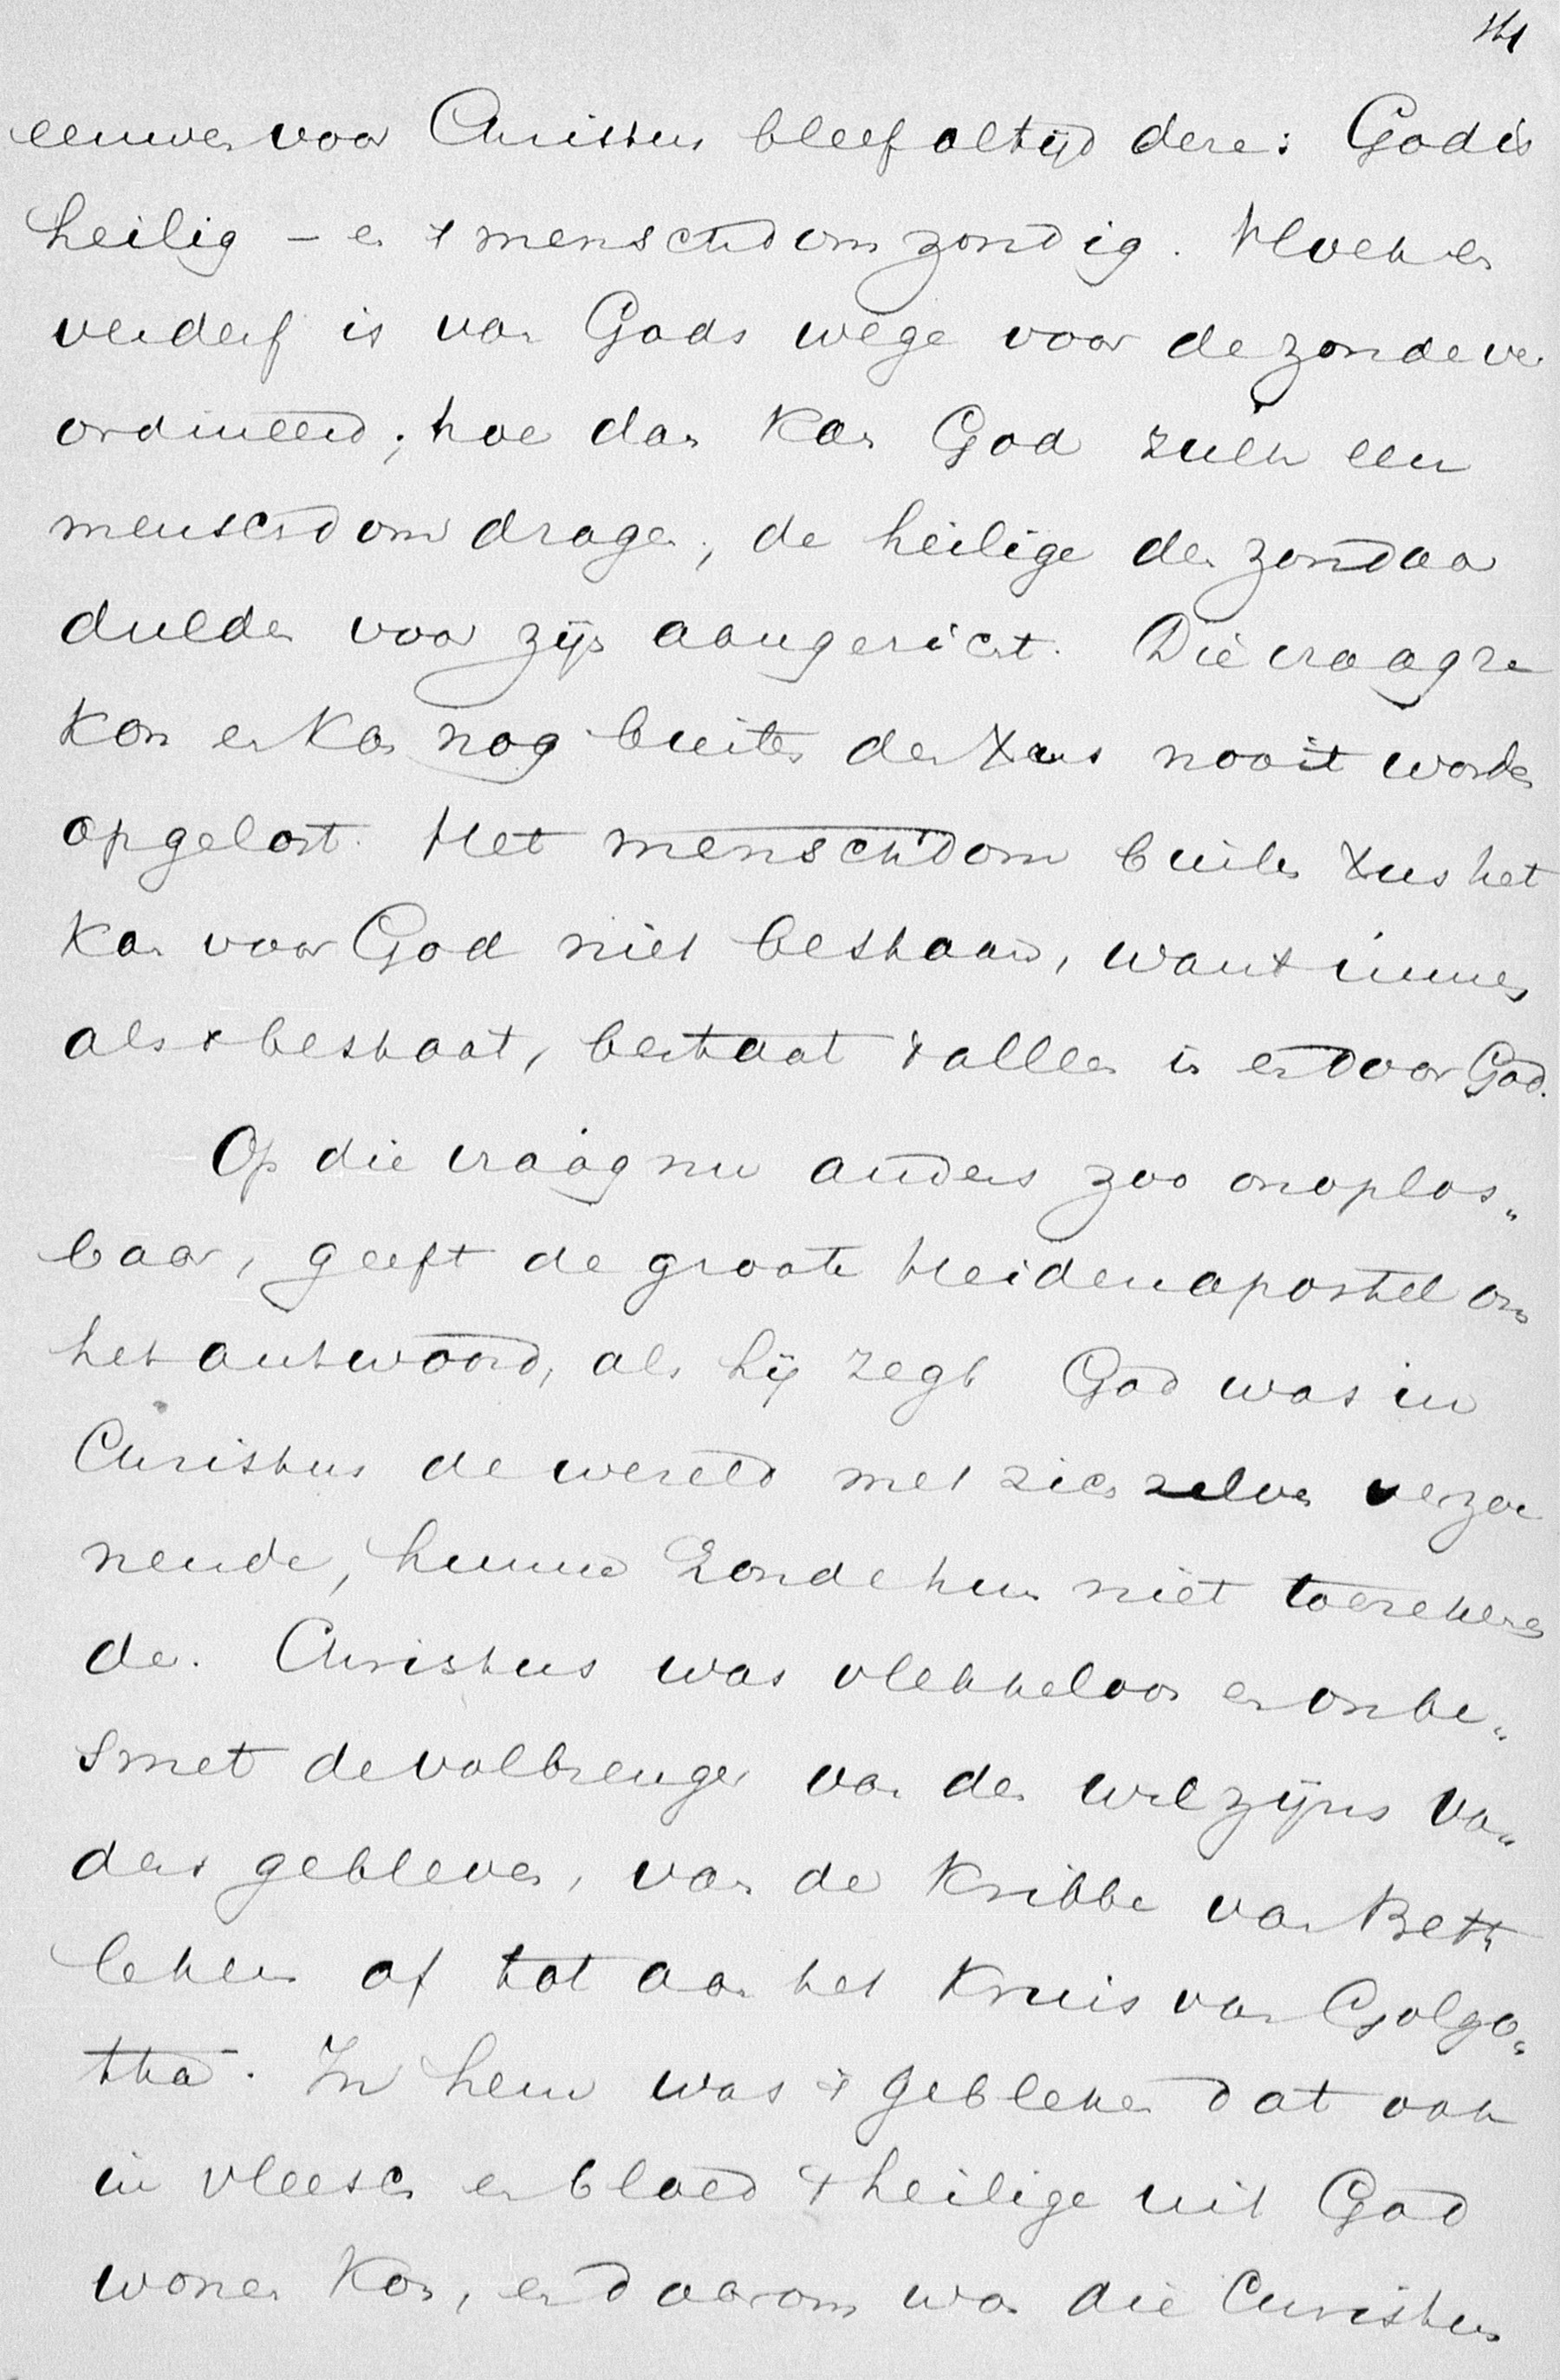 eeuwen voor Christus bleef altijd deze: God is
heilig – en 't menschdom zondig. Vloek en
verderf is van Gods wege voor de zonde ver
ordineerd; hoe dan kan God zulk een
menschdom dragen, de heilige den zondaar
dulden voor zijn aangezicht. Die vraag
kon en kan nog buiten den Xtus nooit worden
opgelost. Het menschdom buiten Xtus het
kan voor God niet bestaan, want immers
als 't bestaat, bestaat 't alleen in en door God.
Op die vraag nu anders zoo onoplos„
baar, geeft de groote Heidenapostel ons
het antwoord, als hij zegt God was in
Christus de wereld met zich zelven verzoe
nende, hunne zonde hun niet toerekenen
de. Christus was vlekkeloos en onbe„
smet de volbrenger van den wil zijns Va„
ders gebleven, van de Kribbe van Beth
lehem af tot aan het Kruis van Golgo„
tha. In hem was 't gebleken dat ook
in vleesch en bloed 't heilige uit God
wonen kon, en daarom was die Christus